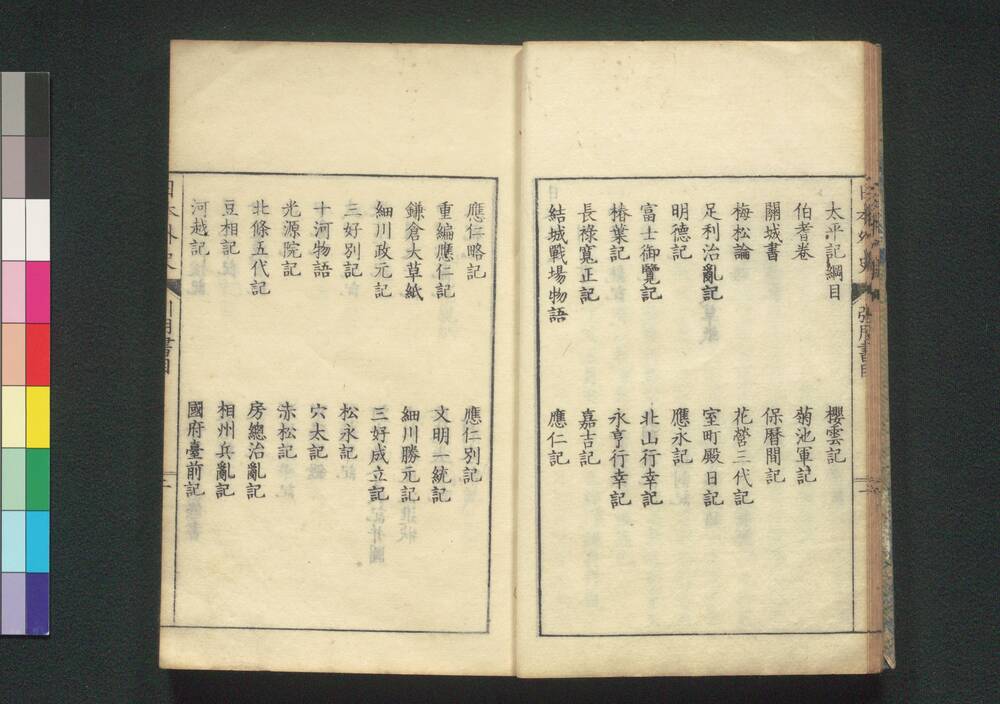 太平記綱目
櫻雲記
伯耆卷
菊池軍記
關城書
保曆間記
梅松論
花營三代記
足利治亂記
室町殿日記
明德記
應永記
富士御覽記
北山行幸記
椿葉記
永亨行幸記
長祿寬正記
嘉吉記
結城戰場物語
應仁記
應仁略記
應仁別記
重編應仁記
文明一統記
鎌倉大草紙
細川勝元記
細川政元記
三好成立記
三好別記
松永記
十河物語
穴太記
光源院記
赤松記
北條五代記
房總治亂記
豆相記
相州兵亂記
河越記
國府臺前記
日本外史
引用書目